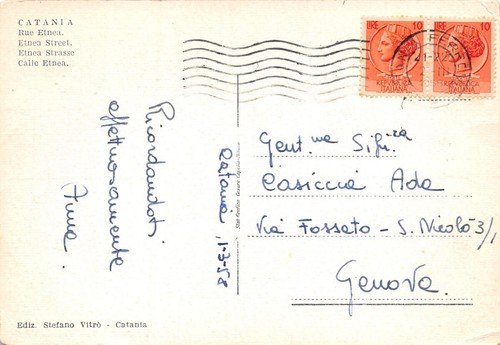 CATANIA
Rue Etnea.
Etnea Street.
Etnea Strasse
Calle Etnea.
LIRE 10
LIRE 10
ITALIANA
ITALIANA
Ricordandoti
affettuosamente
Catania, 1-3-58
Gent.me Sig.ra
Casiccia Ada
Via Fossato - S. Nicolò 3/1
Genova.
Ediz. Stefano Vitrò - Catania